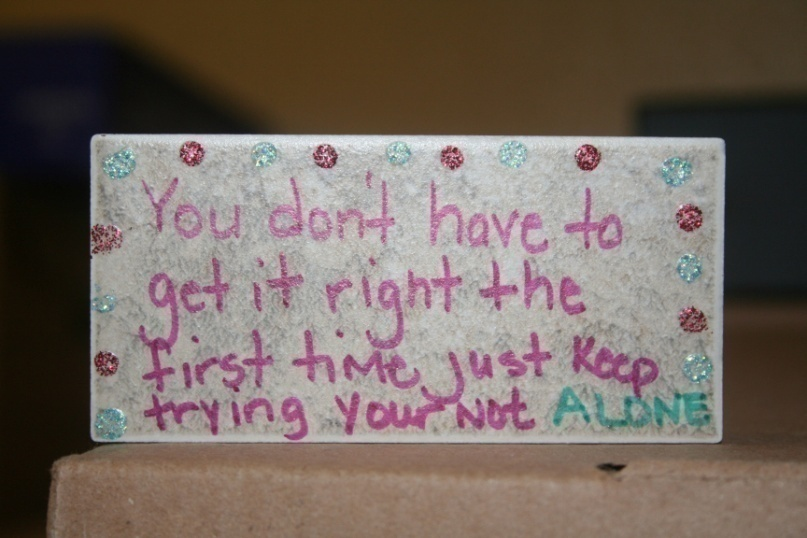 You don't have to
get it right the
first time just Keep
trying Your Not ALONE